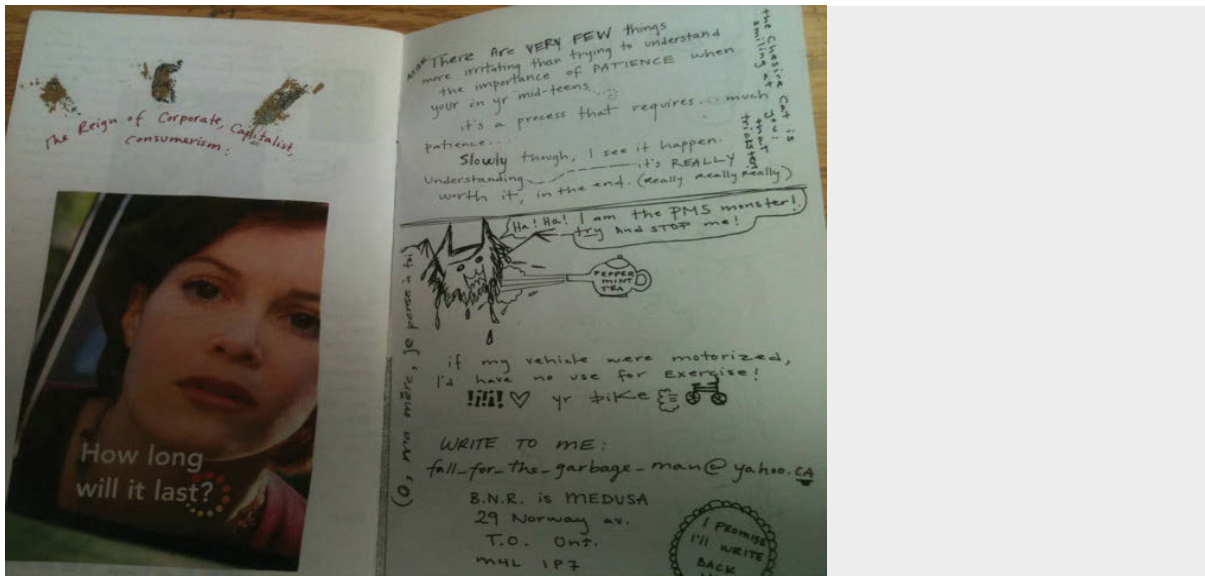 The Reign of Corporate, Capitalist,
Consumerism:
How long
will it last?
There Are VERY FEW things
more irritating than trying to understand
the importance of PATIENCE when
your in yr mid-teens....
it's a process that requires... much
patience...
Slowly though, I see it happen.
Understanding it's REALLY
worth it, in the end. (Really Really Really)
the Chesire Cat is
smiling at you:
that
trickster
Ha! Ha! I am the PMS monster!
try And STOP me!
PEPPER
MINT
TEA
(O, ma mère, je pense à toi
if my vehicle were motorized,
I'd have no use for Exercise!
!¡!¡! ♡ yr bike
WRITE TO ME:
fall_for_the_garbage_man@yahoo.CA
B.N.R. is MEDUSA
29 Norway av.
T.O. Ont.
M4L 1P7
I PROMISE
I'll WRITE
BACK